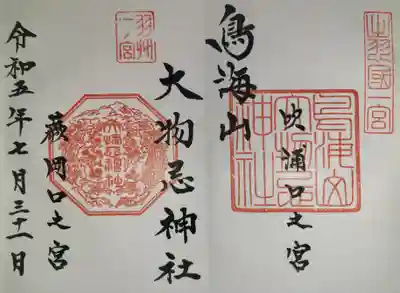 出羽國一宮
吹浦口之宮
鳥海山
大物忌神社
羽州一ノ宮
蕨岡口之宮
令和五年七月三十一日